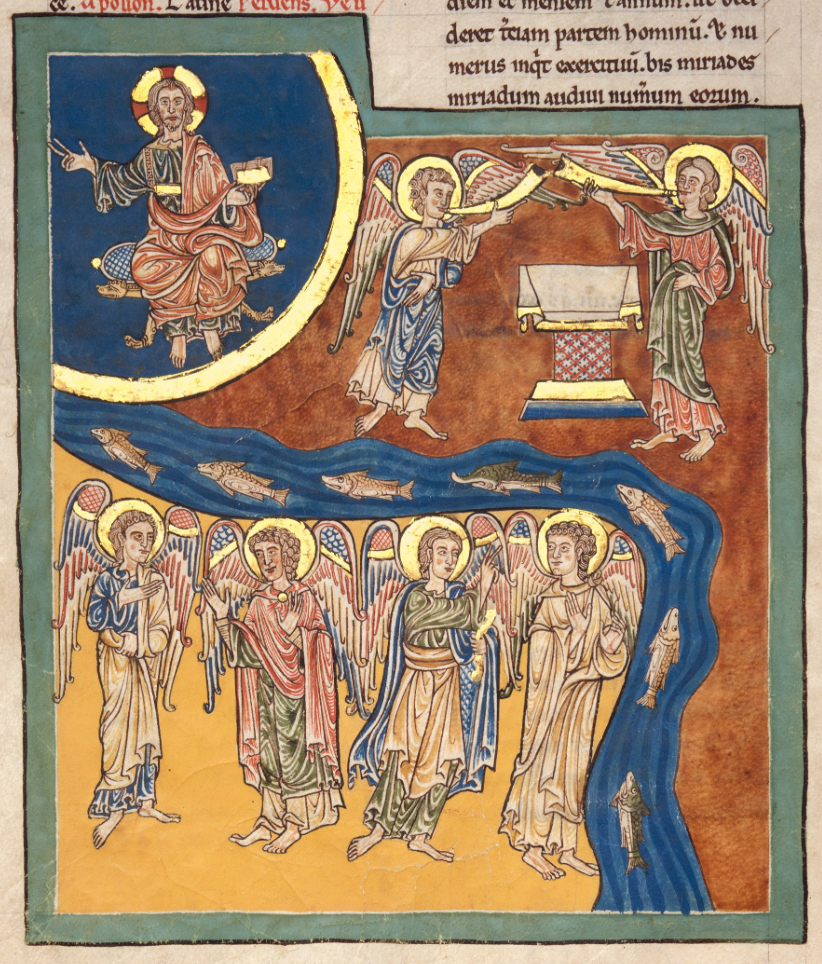 ce. apolion. Latine Perdens. Ve u
diem et mensem & annum. ut occi
deret t̄ciam partem hominū. & nu
merus inq̇t exercituū. bis miriades
miriadum audiui num̄um eorum.